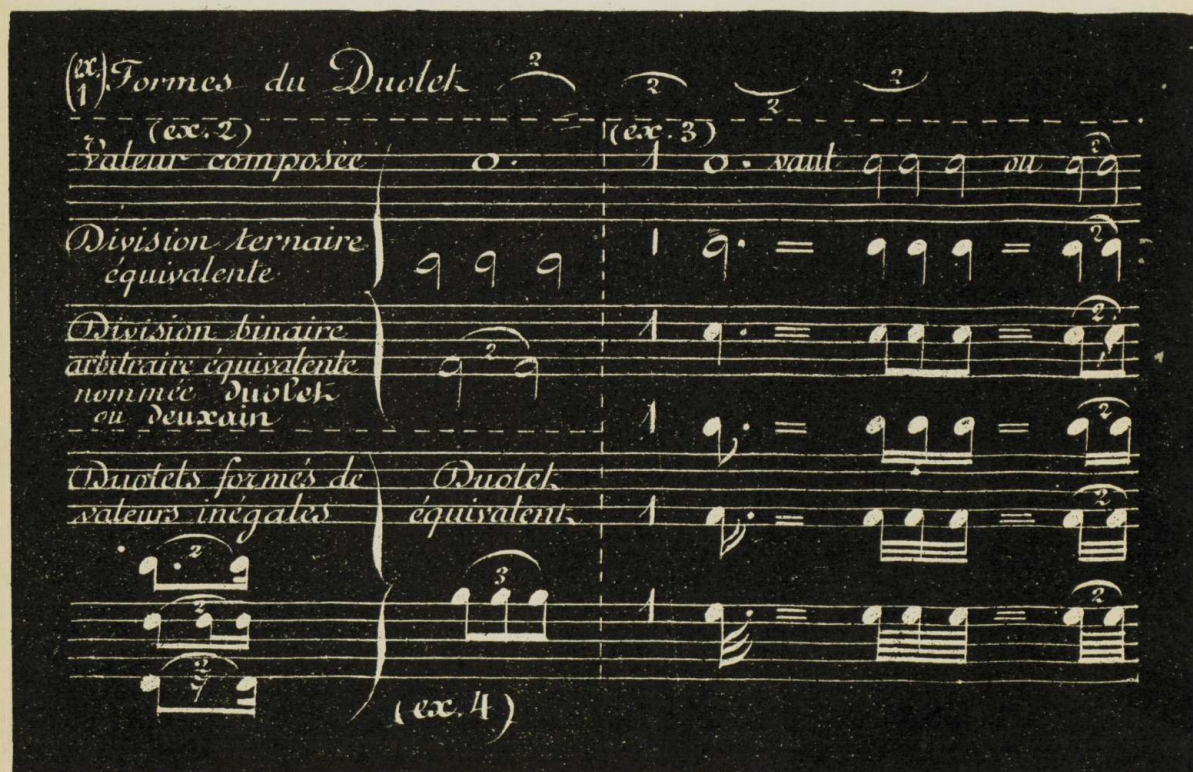 (ex. 1) Formes du Duolet 2 2 2 2
(ex. 2)
Valeur composée
Division ternaire
équivalente
Division binaire
arbitraire équivalente
nommée duolet
ou deuxain
2
Duolets formés de
valeurs inégales
2
2
2
Duolet
équivalent
3
(ex. 4)
(ex. 3)
1 vaut ou 2
1 = = 2
1 = = 2
1 = = 2
1 = = 2
1 = = 2